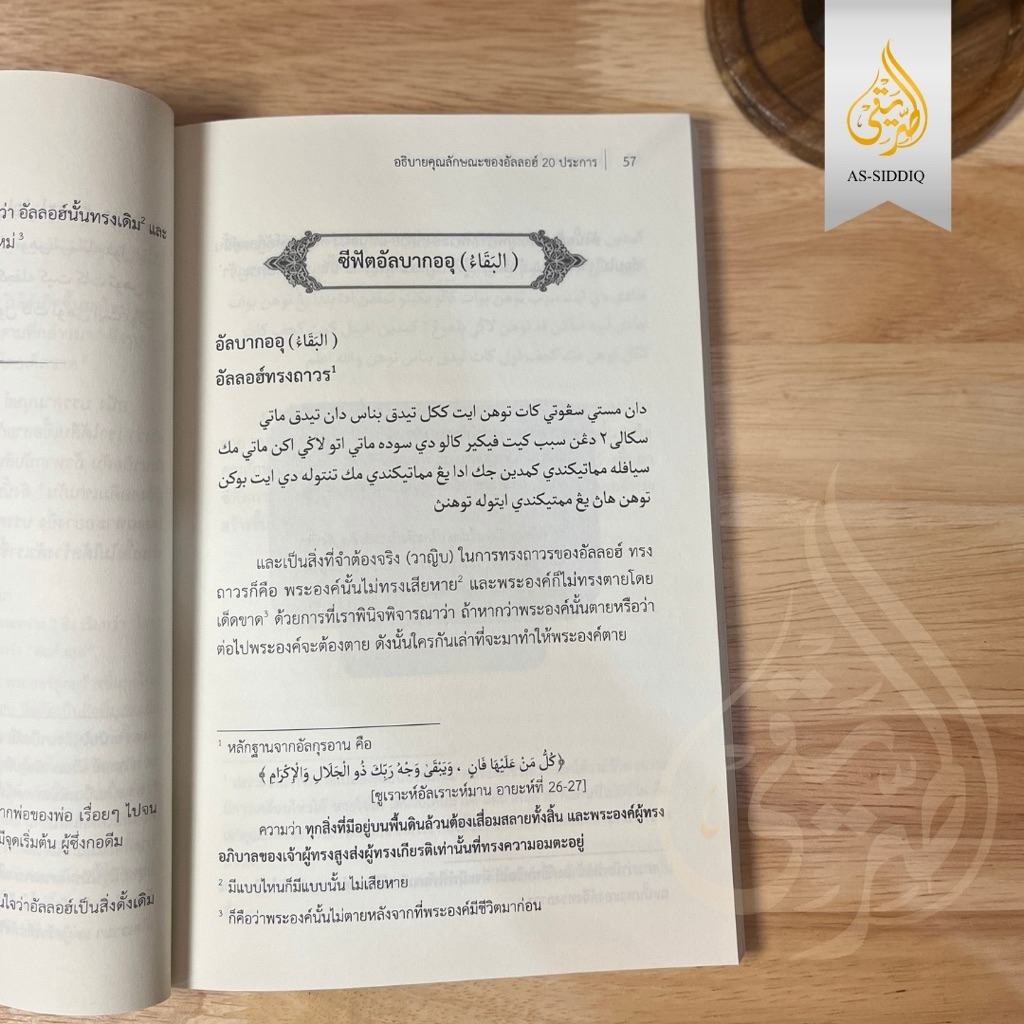 الصديقي
AS-SIDDIQ
ว่า อัลลอฮ์นั้นทรงเดิม² และ
หม่ ³
ากพ่อของพ่อ เรื่อยๆ ไปจน
มีจุดเริ่มต้น ผู้ซึ่งกอดีม
นใจว่าอัลลอฮ์เป็นสิ่งดั้งเดิม
อธิบายคุณลักษณะของอัลลอฮ์ 20 ประการ | 57
ซีฟัตอัลบากออุ (البَقَاءُ)
อัลบากออุ (البَقَاءُ)
อัลลอฮ์ทรงถาวร¹
دان مستي سڠوتي كات توهن ايت ككل تيدق بناس دان تيدق ماتي
سكالى ٢ دڠن سبب كيت فيكير كالو دي سوده ماتي اتو لاڬي اكن ماتي مك
سيافله مماتيكندي كمدين جك ادا يڠ مماتيكندي مك تنتوله دي ايت بوكن
توهن هاڽ يڠ ممتيكندي ايتوله توهنڽ
และเป็นสิ่งที่จำต้องจริง (วาญิบ) ในการทรงถาวรของอัลลอฮ์ ทรง
ถาวรก็คือ พระองค์นั้นไม่ทรงเสียหาย² และพระองค์ก็ไม่ทรงตายโดย
เด็ดขาด³ ด้วยการที่เราพินิจพิจารณาว่า ถ้าหากว่าพระองค์นั้นตายหรือว่า
ต่อไปพระองค์จะต้องตาย ดังนั้นใครกันเล่าที่จะมาทำให้พระองค์ตาย
¹ หลักฐานจากอัลกุรอาน คือ
﴿كُلُّ مَنْ عَلَيْهَا فَانٍ ، وَيَبْقَىٰ وَجْهُ رَبِّكَ ذُو الْجَلَالِ وَالْإِكْرَامِ﴾
[ซูเราะห์อัลเราะห์มาน อายะห์ที่ 26-27]
ความว่า ทุกสิ่งที่มีอยู่บนพื้นดินล้วนต้องเสื่อมสลายทั้งสิ้น และพระองค์ผู้ทรง
อภิบาลของเจ้าผู้ทรงสูงส่งผู้ทรงเกียรติเท่านั้นที่ทรงความอมตะอยู่
² มีแบบไหนก็มีแบบนั้น ไม่เสียหาย
³ ก็คือว่าพระองค์นั้นไม่ตายหลังจากที่พระองค์มีชีวิตมาก่อน